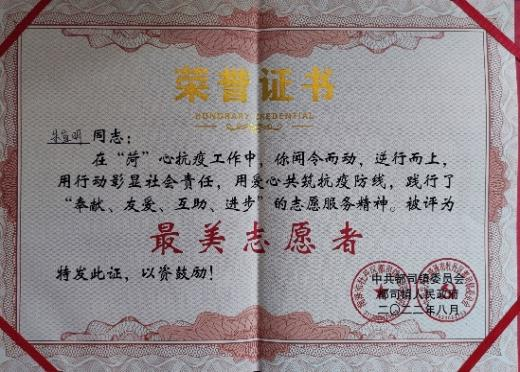 荣誉证书
HONORARY CREDENTIAL
同志：
在“菏”心抗疫工作中，你闻令而动，逆行而上，
用行动彰显社会责任，用爱心共筑抗疫防线，践行了
“奉献、友爱、互助、进步”的志愿服务精神。被评为
最美志愿者
特发此证，以资鼓励！
中共都司镇委员会
都司镇人民政府
二〇二二年八月